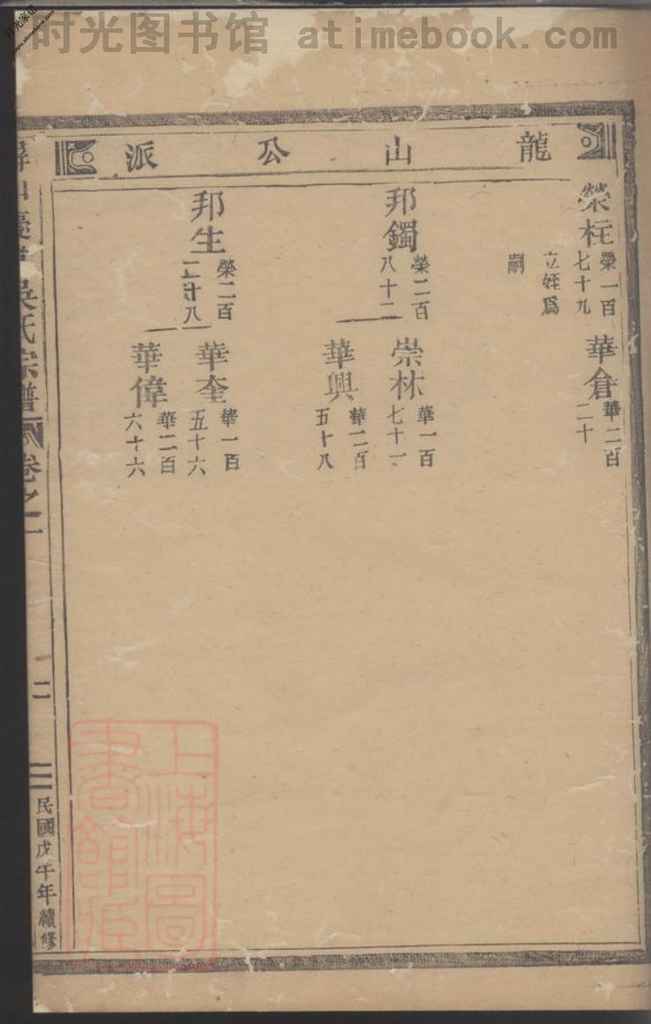 时光图书馆 atimebook.com
龍山公派
榮柱
榮一百
七十九
立姪爲
嗣
華倉
華二百
二十
邦鐲
榮二百
八十二
崇林
華一百
七十一
華興
華二百
五十八
邦生
榮二百
二十八
華奎
華一百
五十六
華偉
華二百
六十六
吳氏宗譜
卷之二
二
民國戊午年續修
上海圖書館藏